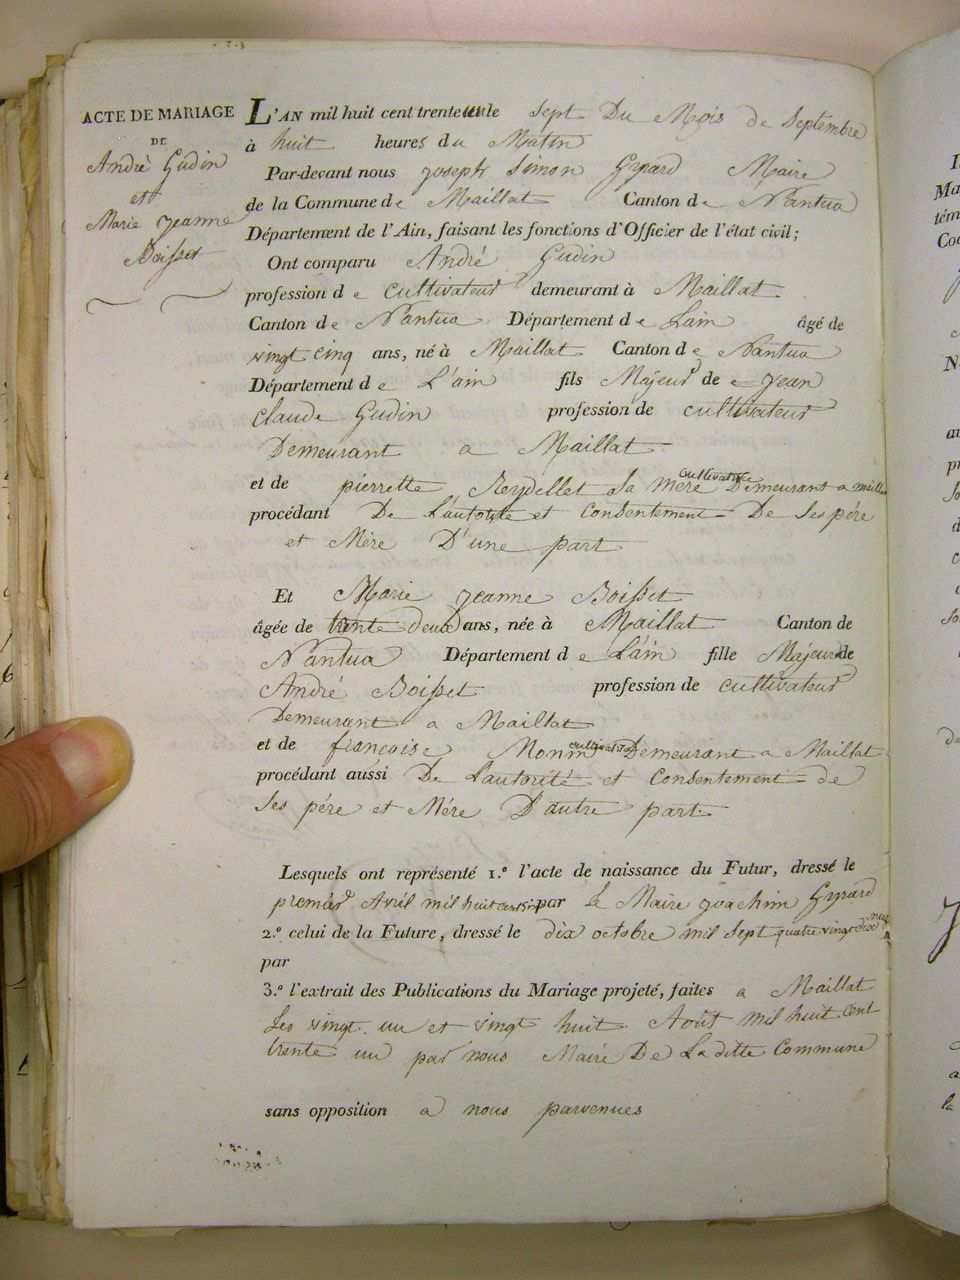 ACTE DE MARIAGE
DE
André Gudin
et
Marie Jeanne
Boisset
L'AN mil huit cent trente un le sept Du Mois de Septembre
à huit heures du Matin
Par-devant nous Joseph Simon Gyrard Maire
de la Commune de Maillat Canton de Nantua
Département de l'Ain, faisant les fonctions d'Officier de l'état civil;
Ont comparu André Gudin
profession de cultivateur demeurant à Maillat
Canton de Nantua Département de Lain âgé de
vingt cinq ans, né à Maillat Canton de Nantua
Département de L'ain fils Majeur de Jean
Claude Gudin profession de cultivateur
Demeurant a Maillat
et de pierrette Reydellet Sa Mère cultivatrice Demeurant a Maillat
procédant De L'autorité et Consentement De Ses père
et Mère D'une part
Et Marie Jeanne Boisset
âgée de trente deux ans, née à Maillat Canton de
Nantua Département de Lain fille Majeure de
André Boisset profession de cultivateur
Demeurant a Maillat
et de françoise Monin cultivatrice Demeurant a Maillat
procédant aussi De L'autorité et Consentement de
Ses père et Mére D'autre part
Lesquels ont représenté 1.º l'acte de naissance du Futur, dressé le
premier Avril mil huit cent six par le Maire Joachim Gyrard
2.º celui de la Future, dressé le dix octobre mil sept quatre vingt dix neuf
par
3.º l'extrait des Publications du Mariage projeté, faites a Maillat
Les vingt un et vingt huit Août mil huit cent
trente un par nous Maire De La ditte Commune
sans opposition a nous parvenues